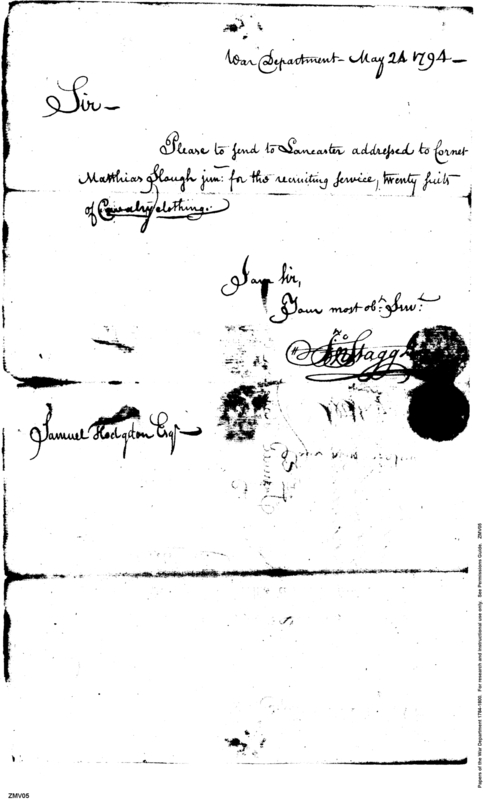 War Department - May 24 1794 -
Sir -
Please to send to Lancaster addressed to Cornet
Matthias Slough junr: for the recruiting service, twenty suits
of Cavalry clothing.
I am Sir,
Your most obt. Servt.
Jno Stagg
Samuel Hodgdon Esqr
Papers of the War Department 1784-1800. For research and instructional use only. See Permissions Guide. ZMV05
ZMV05